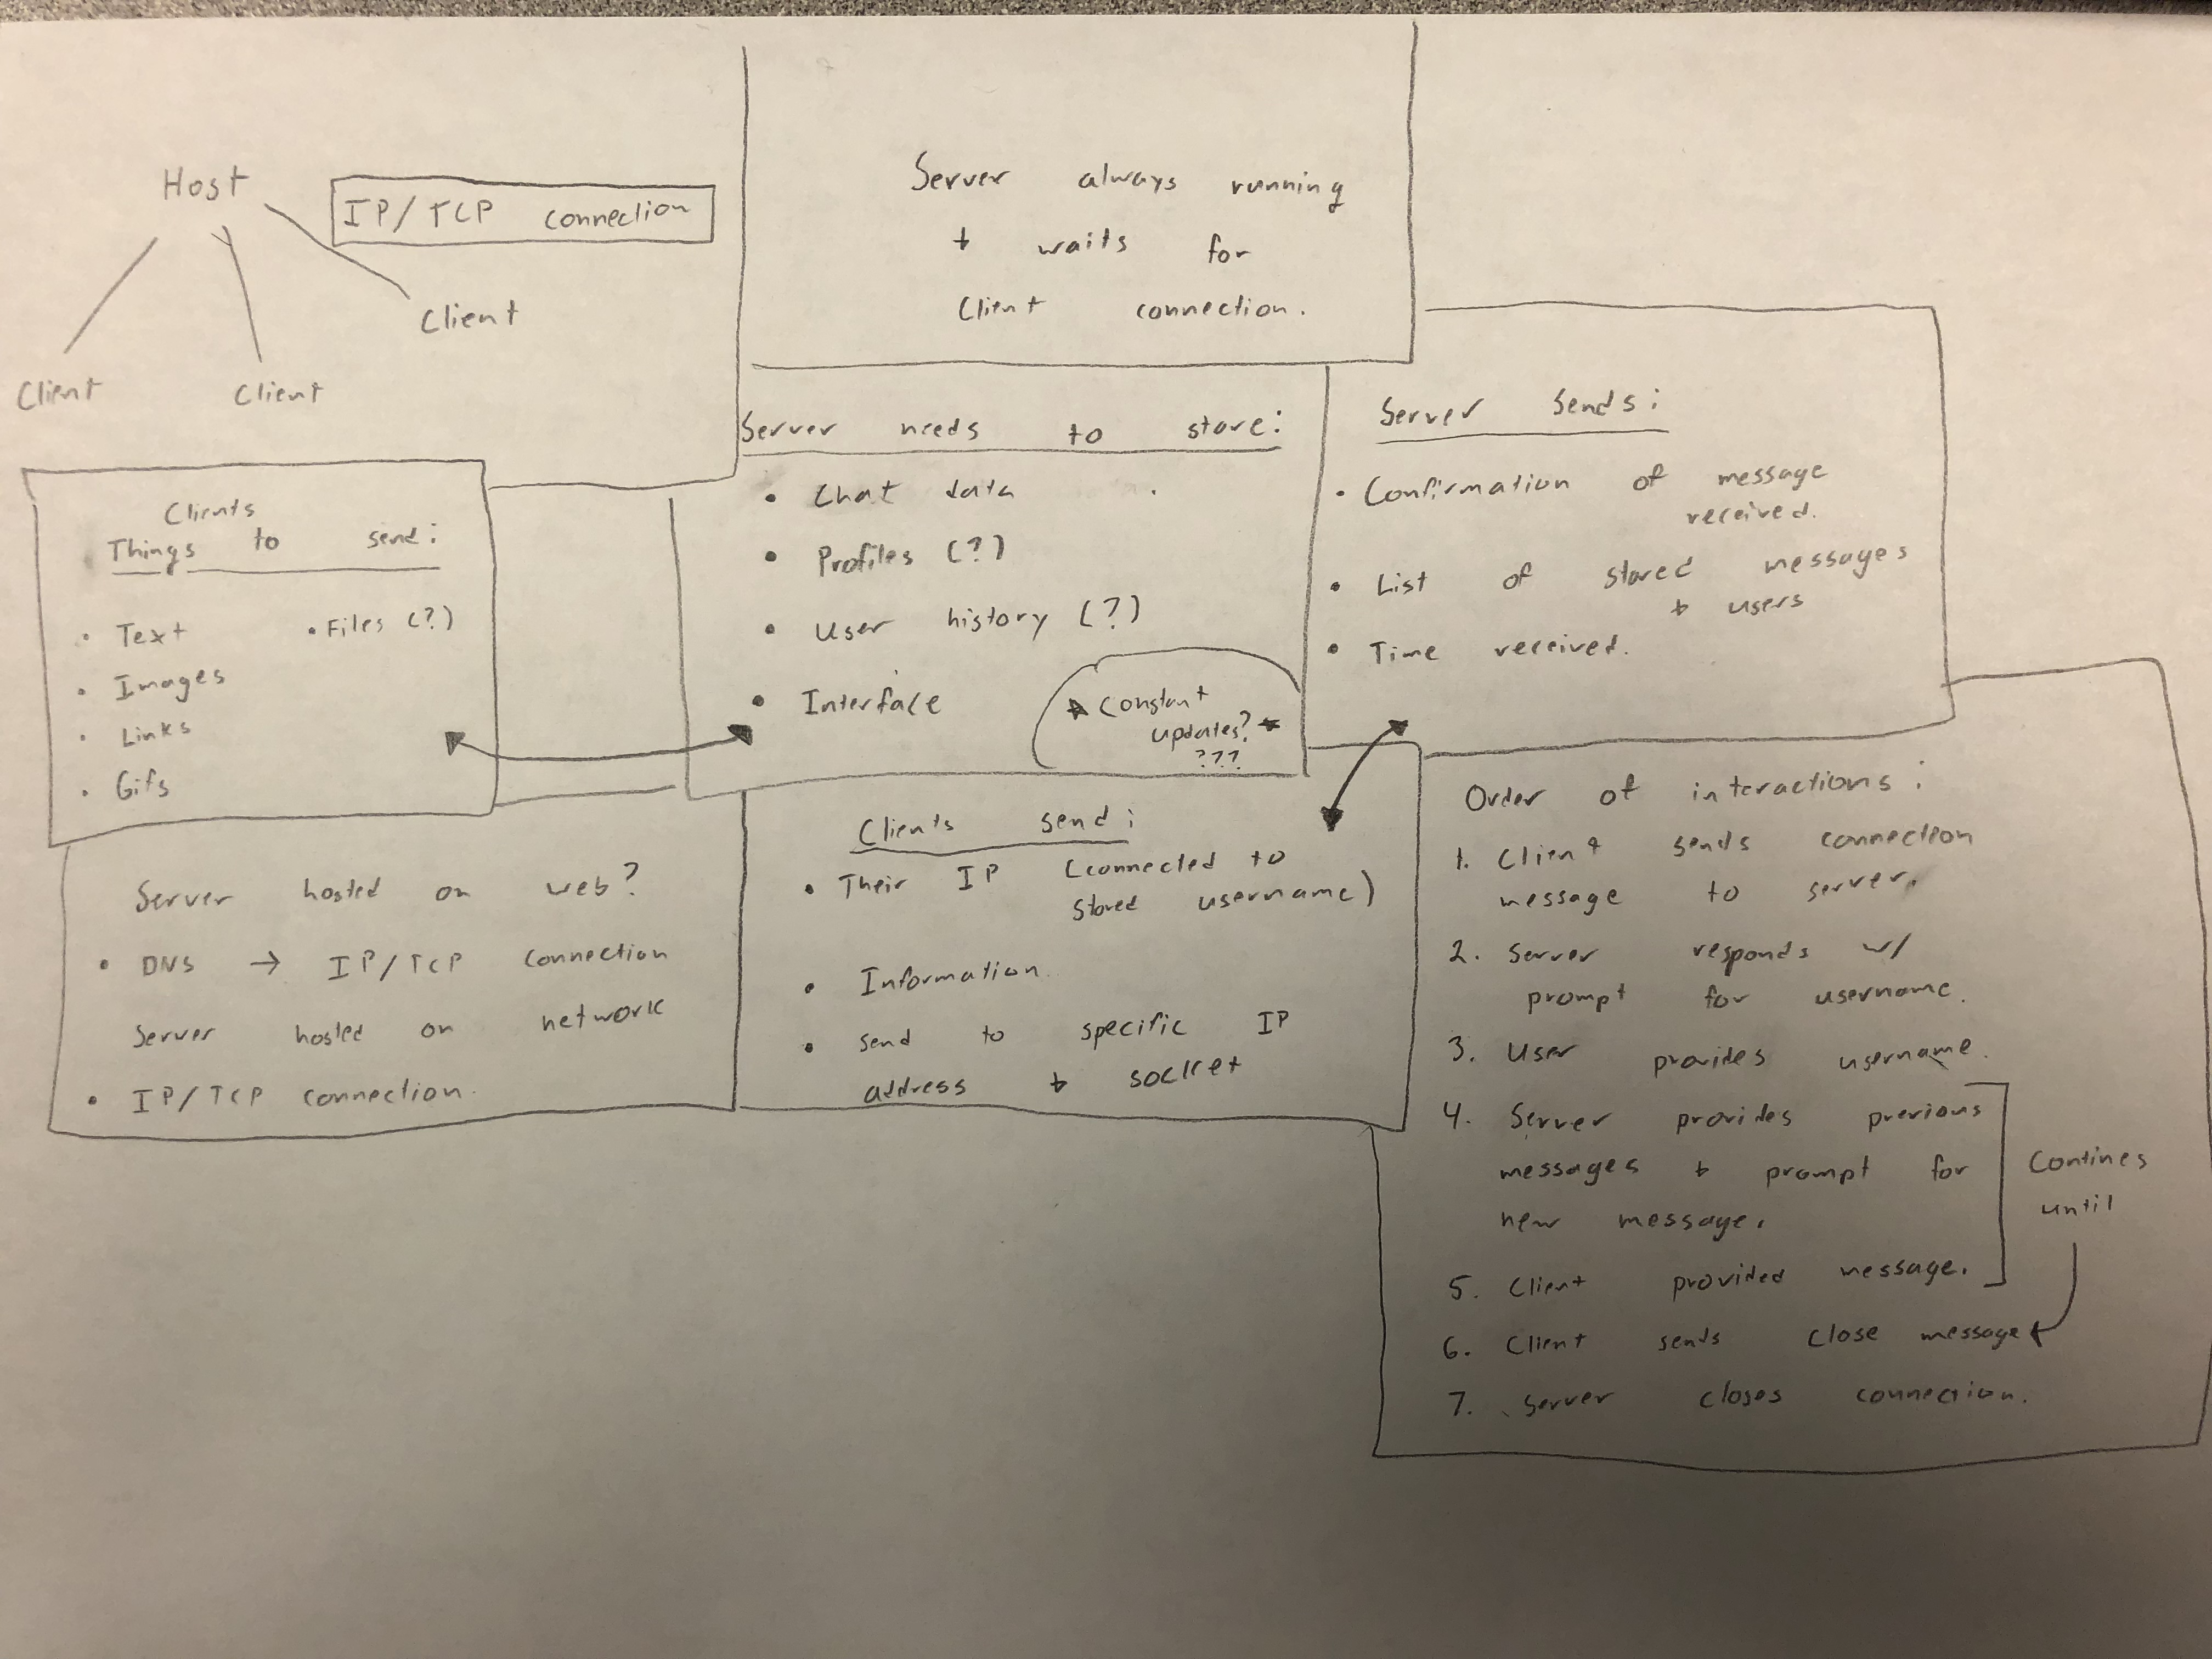 Host
IP/TCP connection
Client
Client
Client
Server always running
+ waits for
Client connection.
Clients
Things to send:
• Text
• Files (?)
• Images
• Links
• Gifs
Server needs to store:
• Chat data
• Profiles (?)
• User history (?)
• Interface
★ Constant
updates? ★
???
Server Sends:
• Confirmation of message
received.
• List of stored messages
+ users
• Time received.
Server hosted on web?
• DNS → IP/TCP connection
Server hosted on network
• IP/TCP connection.
Clients send:
• Their IP (connected to
stored username)
• Information
• send to specific IP
address + socket
Order of interactions:
1. Client sends connection
message to server.
2. Server responds w/
prompt for username.
3. User provides username.
4. Server provides previous
messages + prompt for
new message.
5. Client provided message.
Contines
until
6. Client sends close message
7. Server closes connection.